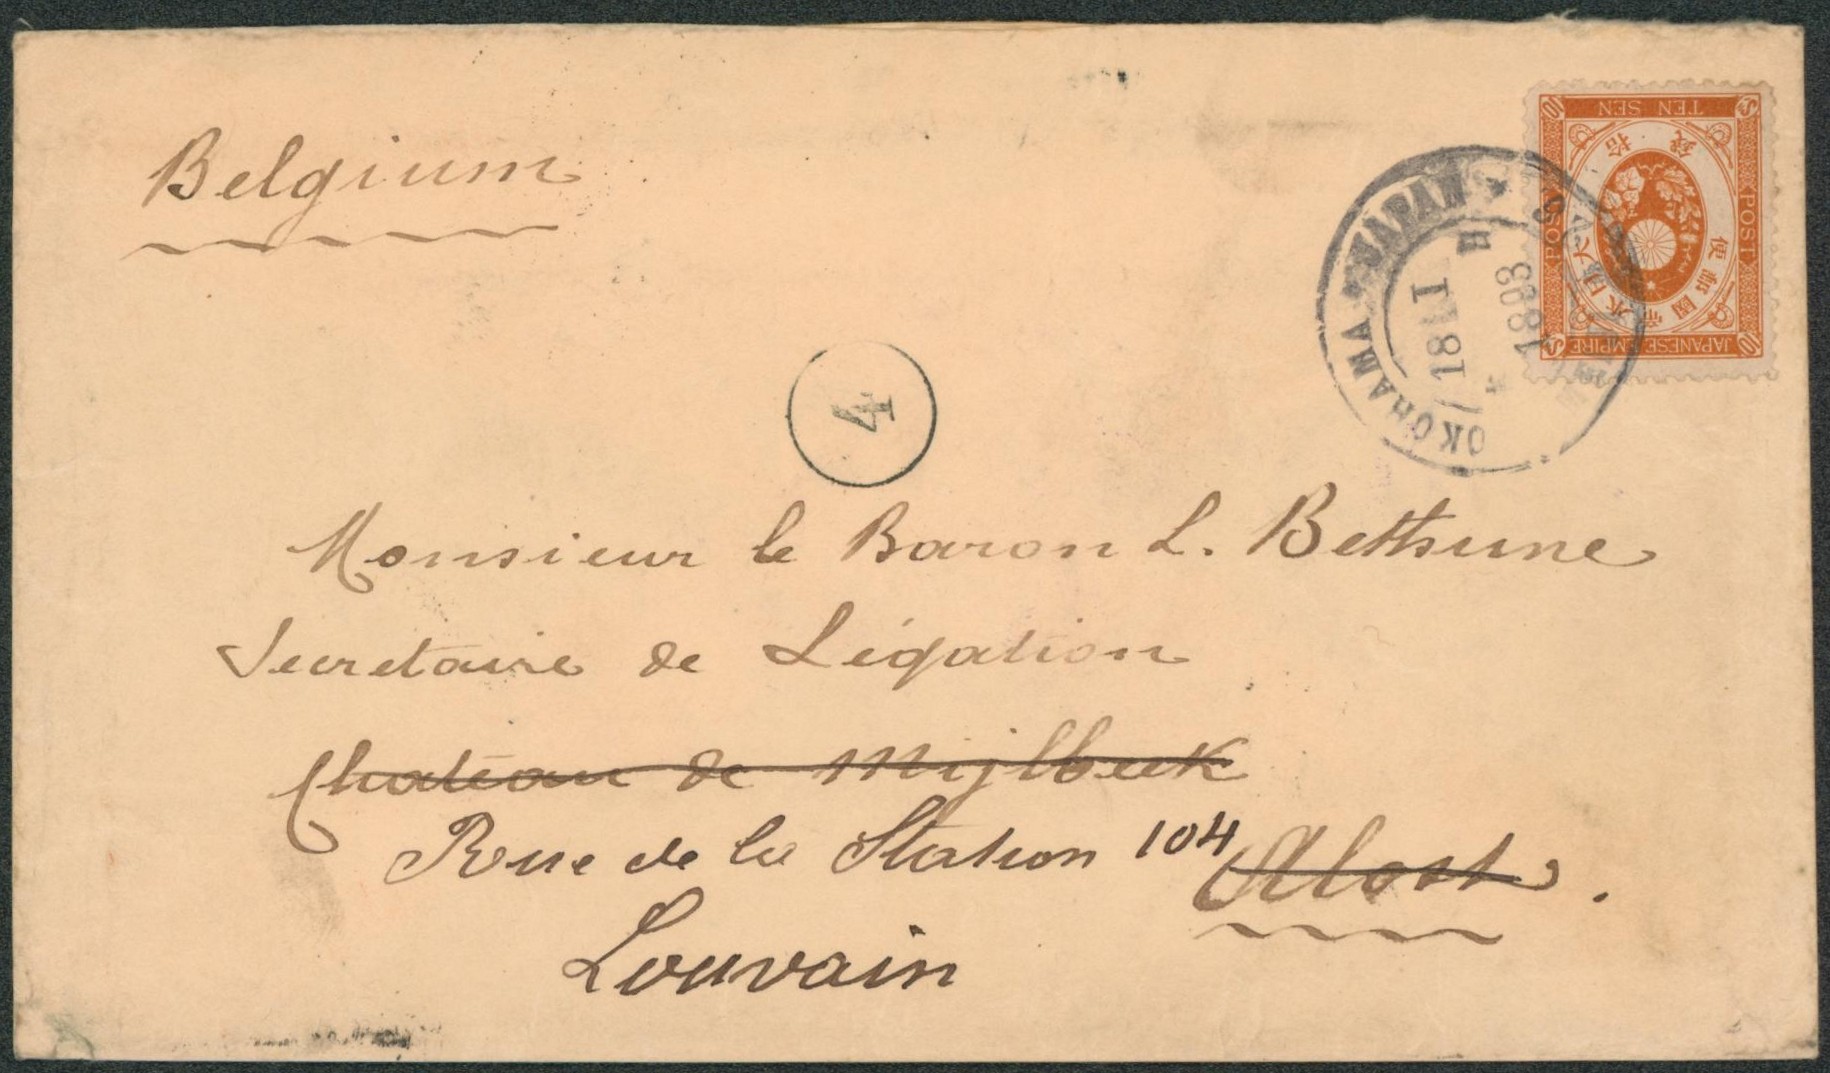 Belgium
TEN SEN
10
10
拾 錢
POST
POST
大日本帝國郵便
JAPANESE EMPIRE
10
OKOHAMA JAPAN
18 II
1893
4
Monsieur le Baron L. Bethune
Secretaire de Légation
Chateau de Mijlbeek
Rue de la Station 104
Alost.
Louvain